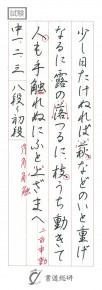 試験
少し日たけぬれば、萩などのいと重げ
なるに露の落つるに、枝うち動きて
人も手触れぬにふと上ざまへ
中一・二・三 八段〜初段
書道総研